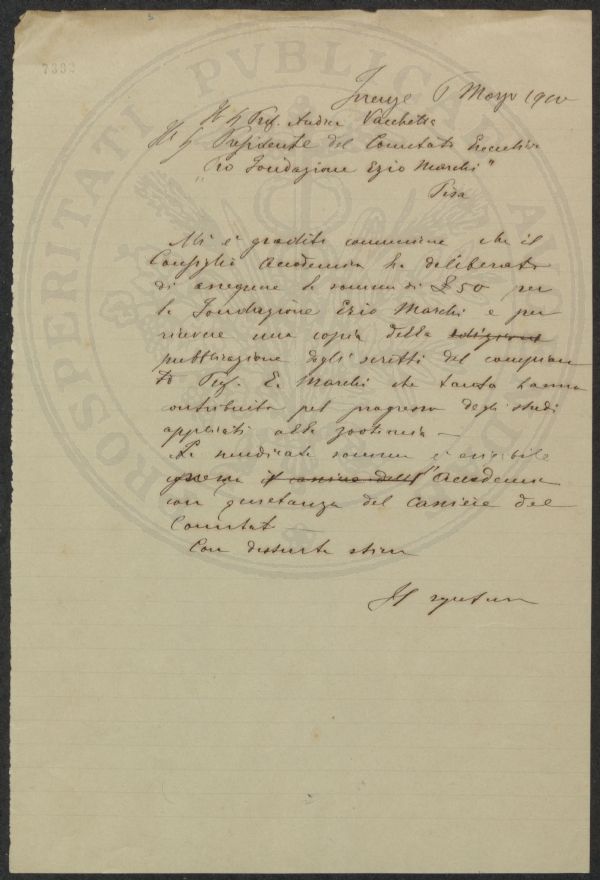 7333
Firenze 6 Marzo 1900
Ill Sg Prof. Andrea Vacchetta
Ill Sg Presidente del Comitato Esecutivo
"Pro Fondazione Ezio Marchi"
Pisa
Mi è gradito comunicare che il
Consiglio Accademia ha deliberato
di assegnare la somma di £50 per
la Fondazione Ezio Marchi e per
ricevere una copia della edizione
pubblicazione degli scritti del compian
to Prof. E. Marchi che tanto hanno
contribuito pel progresso degli studi
applicati alla zootecnia —
La suindicata somma è esigibile
presso il cassiere dell'Accademia
con quietanza del Cassiere del
Comitat
Con distinta stima
Il
PROSPERITATI PVBLICAE AVGENDAE